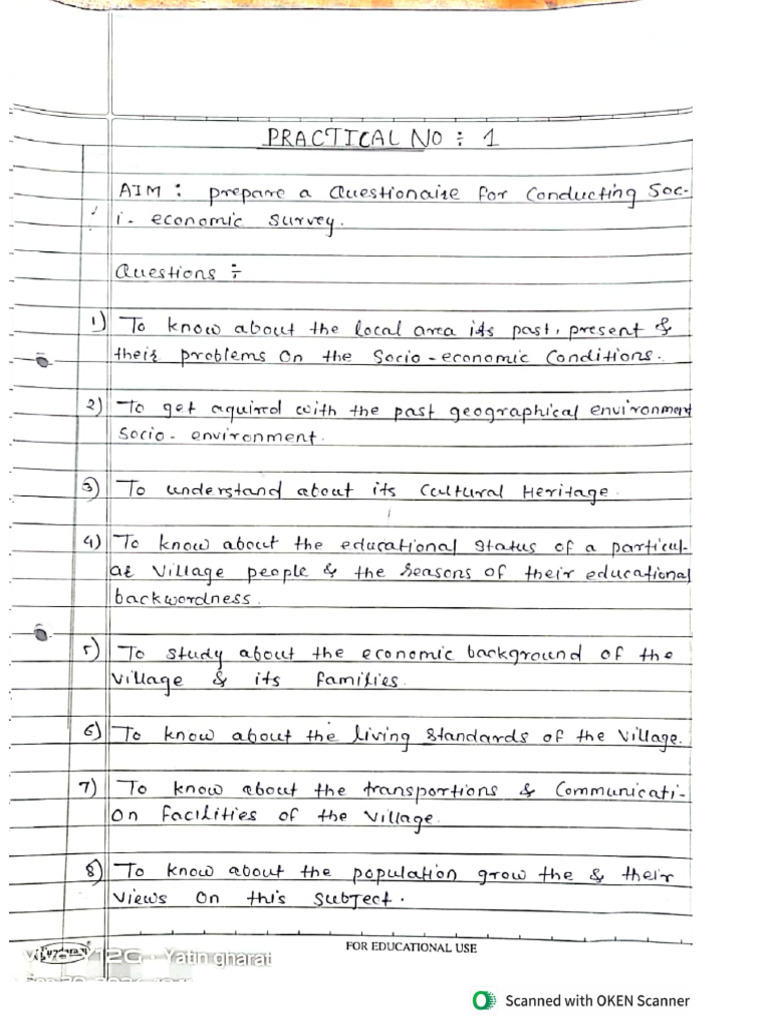 PRACTICAL NO ÷ 1
AIM : prepare a Questionaire for Conducting Soc-
i- economic survey.
Questions ÷
1) To know about the local area its past, present &
their problems on the Socio-economic Conditions.
2) To get aquired with the past geographical environment
Socio- environment.
3) To understand about its Cultural Heritage.
4) To know about the educational status of a particul-
ar village people & the reasons of their educational
backwordness.
5) To study about the economic background of the
village & its families.
6) To know about the living standards of the village.
7) To know about the transportions & Communicati-
on facilities of the village.
8) To know about the population grow the & their
views on this subject.
Sundaram
FOR EDUCATIONAL USE
vivo Y12G · Yatin gharat
Scanned with OKEN Scanner